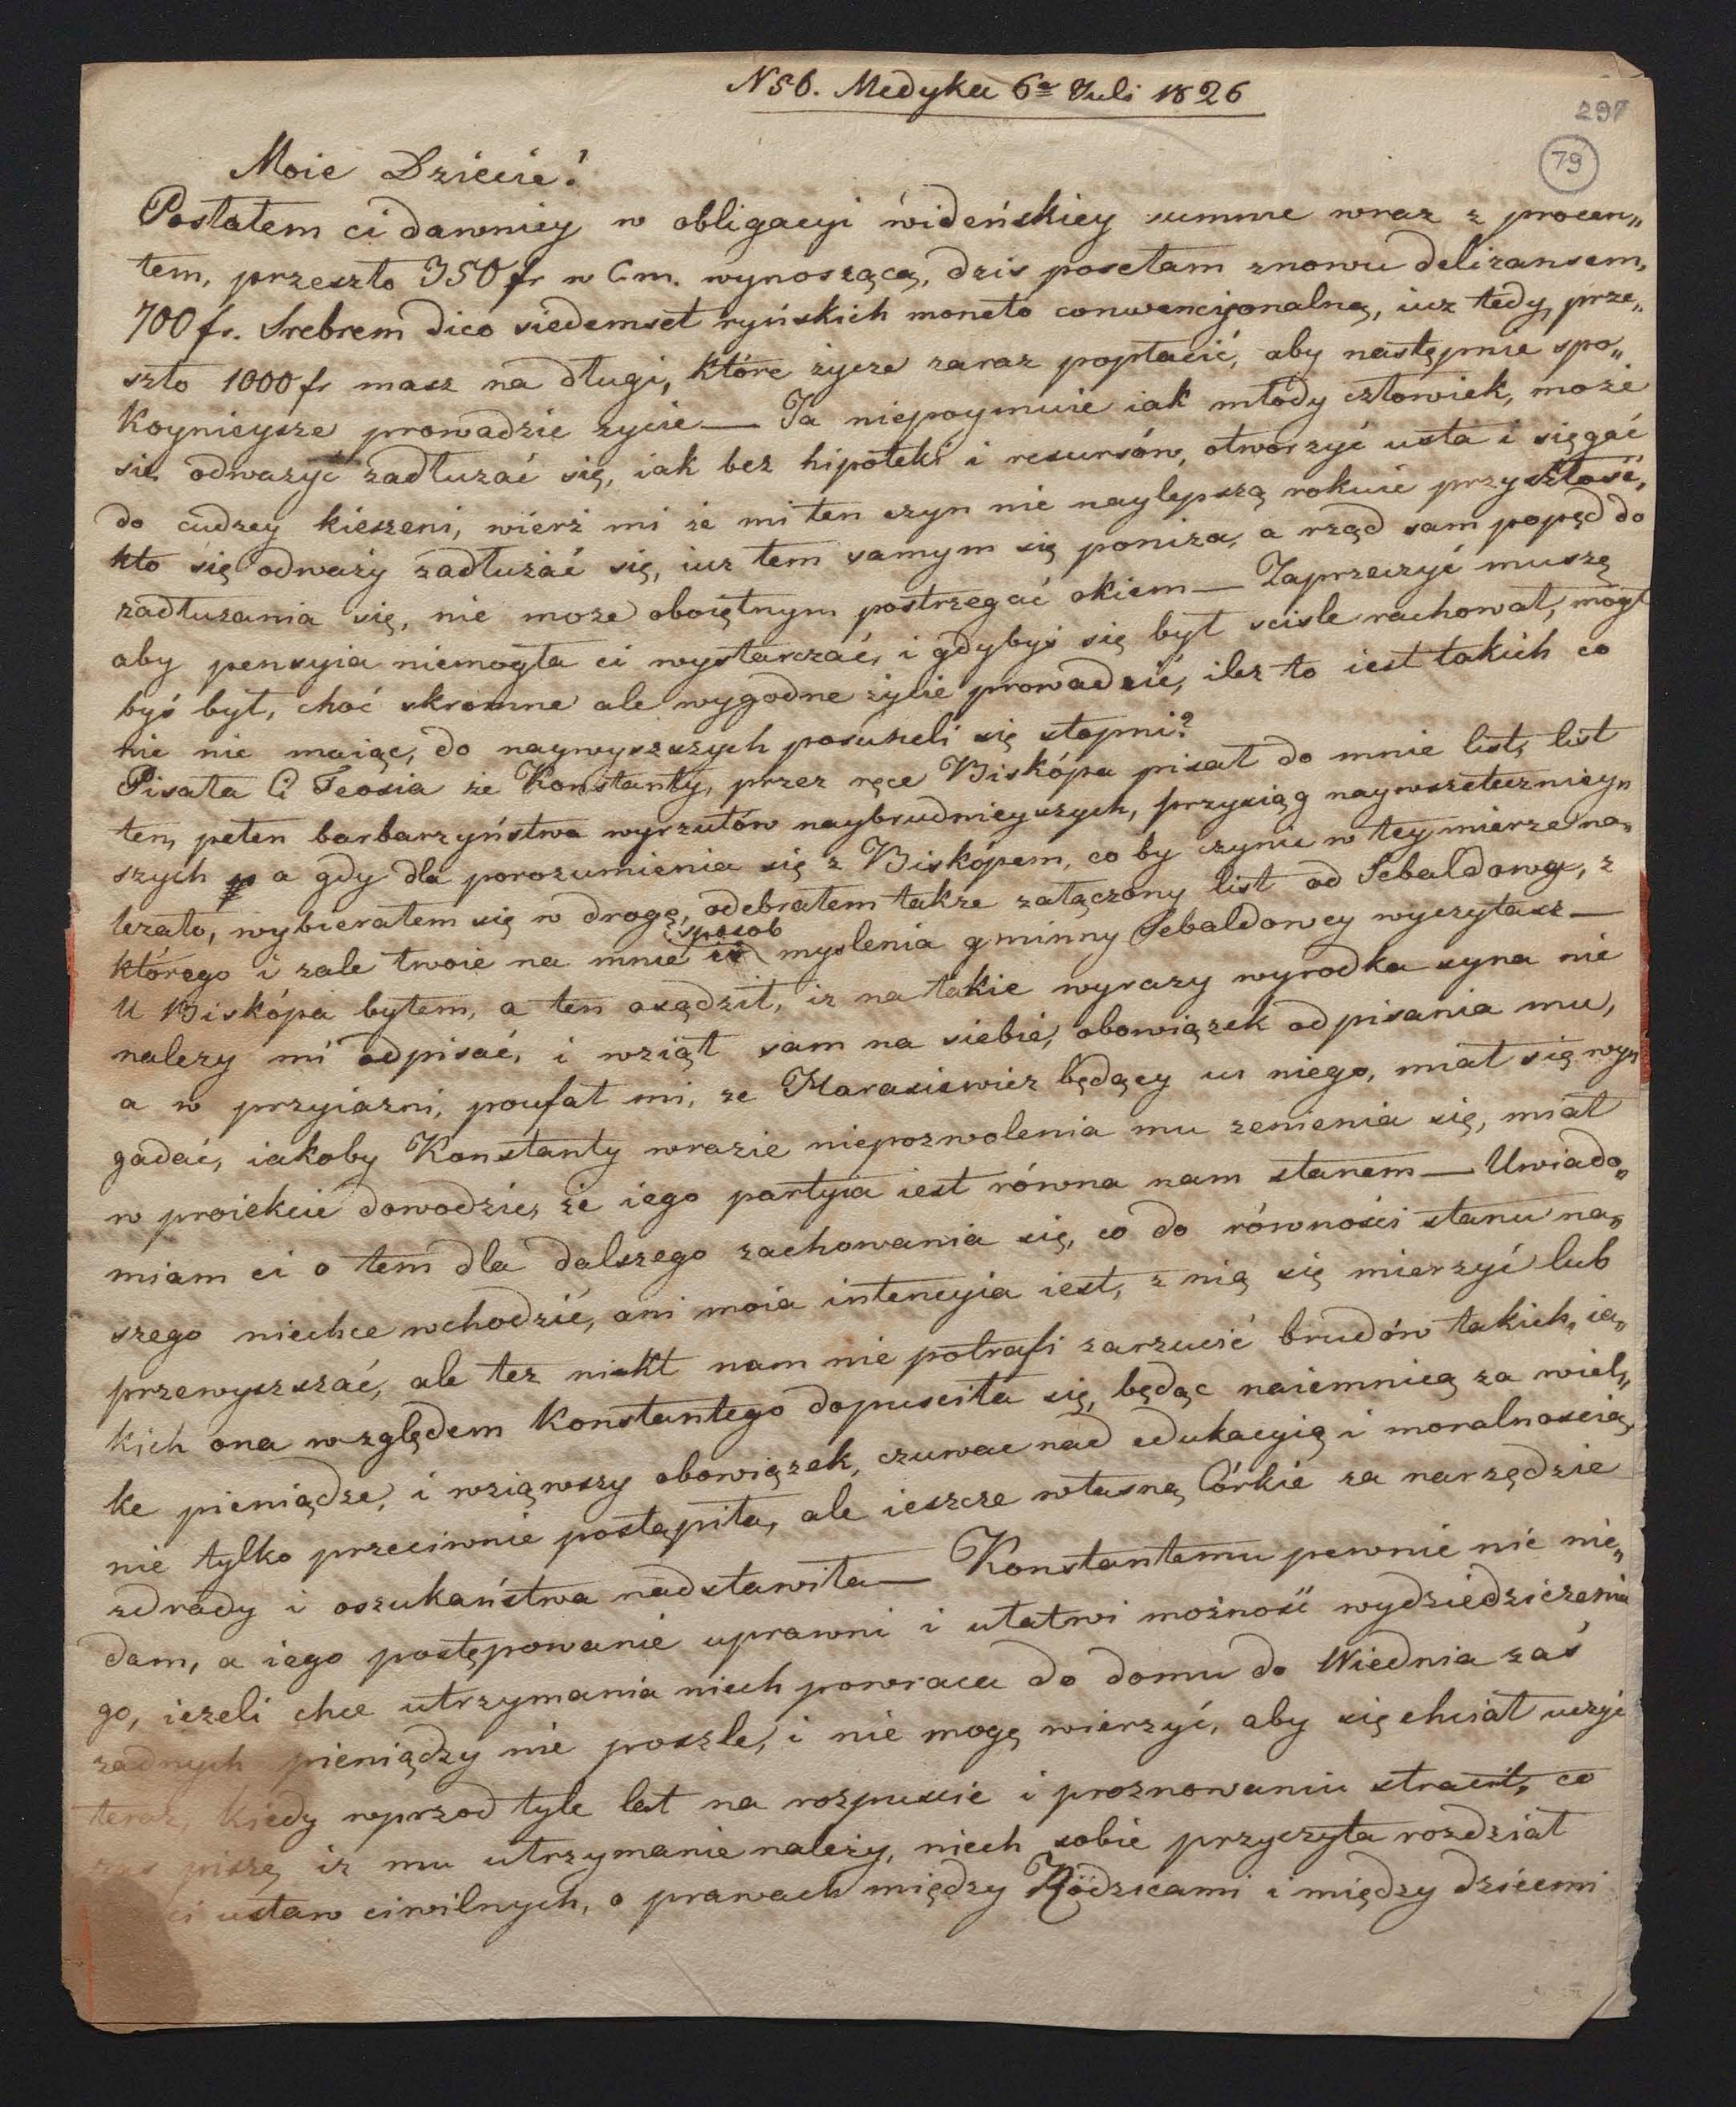 N 56. Medyka 6ª Juli 1826
297
79
Moie Dziecie!
Posłałem ci dawniey w obligacyi wideńskiey summe wraz z procen„
tem, przeszło 350 fr w Cm. wynoszącą, dzis posełam znowu deliżansem,
700 fr. Srebrem dico siedemset ryńskich moneto conwencyonalną, iuz tedy prze„
szło 1000 fr masz na długi, które życze zaraz popłacić, aby następnie spo„
koynieysze prowadzic zycie — Ja niepoymuie iak młody człowiek, może
sie odwazyć zadłuzać się, iak bez hipoteki i resursów, otworzyć usta i sięgać
do cudzey kieszeni, wierż mi że mi ten czyn nie naylepszą rokuie przyszłość,
kto się odważy zadłużać się, iuz tem samym się poniza, a rząd sam popęd do
zadłuzania się, nie moze oboiętnym postrzegać okiem — Zaprzeczyć muszę
aby pensyia niemogła ci wystarczać, i gdybyś się był scisle rachował, mógł
byś był, choć skromne ale wygodne życie prowadzić, ilez to iest takich co
nic nie maiąc, do naywyszszych posuneli się stopni?
Pisała Ci Teosia że Konstanty, przez ręce Biskópa pisał do mnie list, list
ten, pełen barbarzyństwa wyrzutów naybrudnieyszych, przysiąg naywszeteczniey„
szych a gdy dla porozumienia się z Biskópem, co by czynic w tey mierze na„
lezało, wybierałem się w drogę, odebrałem takze załączony list od Sebaldowey, z
którego i zale twoie na mnie i sposob myslenia gminny Sebaldowey wyczytasz —
U Biskópa byłem, a ten osądził, iz na takie wyrazy wyrodka syna nie
nalezy mi odpisać, i wziął sam na siebie, obowiązek odpisania mu,
a w przyiazni, poufał mi, ze Harasiewicz będący u niego, miał się wy„
gadać, iakoby Konstanty wrazie niepozwolenia mu zenienia się, miał
w proiekcie dowodzic, że iego partyia iest równa nam stanem — Uwiado„
miam ci o tem dla dalszego zachowania się, co do równości stanu na„
szego niechce wchodzić, ani moia intencyia iest, z nią się mierzyć lub
przewyszszać, ale tez nikt nam nie potrafi zarzucić brudów takich, ia„
kich ona względem Konstantego dopusciła się, będąc naiemnicą za wiel„
ke pieniądze, i wziąwszy obowiązek, czuwac nad edukacyią i moralnoscią,
nie tylko przeciwnie postąpiła, ale ieszcze własną Córkie za narzędzie
zdrady i oszukaństwa nadstawiła — Konstantemu pewnie nic nie„
dam, a iego postępowanie uprawni i ułatwi możność wydziedziczenia
go, ieżeli chce utrzymania niech powraca do domu do Wiednia zaś
zadnych pieniędzy nie poszle, i nie mogę wierzyć, aby się chciał uczyć
teraz, kiedy wprzod tyle lat na rozpuscie i proznowaniu stracił, co
zas pisze, iz mu utrzymanie należy, niech sobie przyczyta rozdział
ci ustaw ciwilnych, o prawach między Rodzicami i między dziećmi